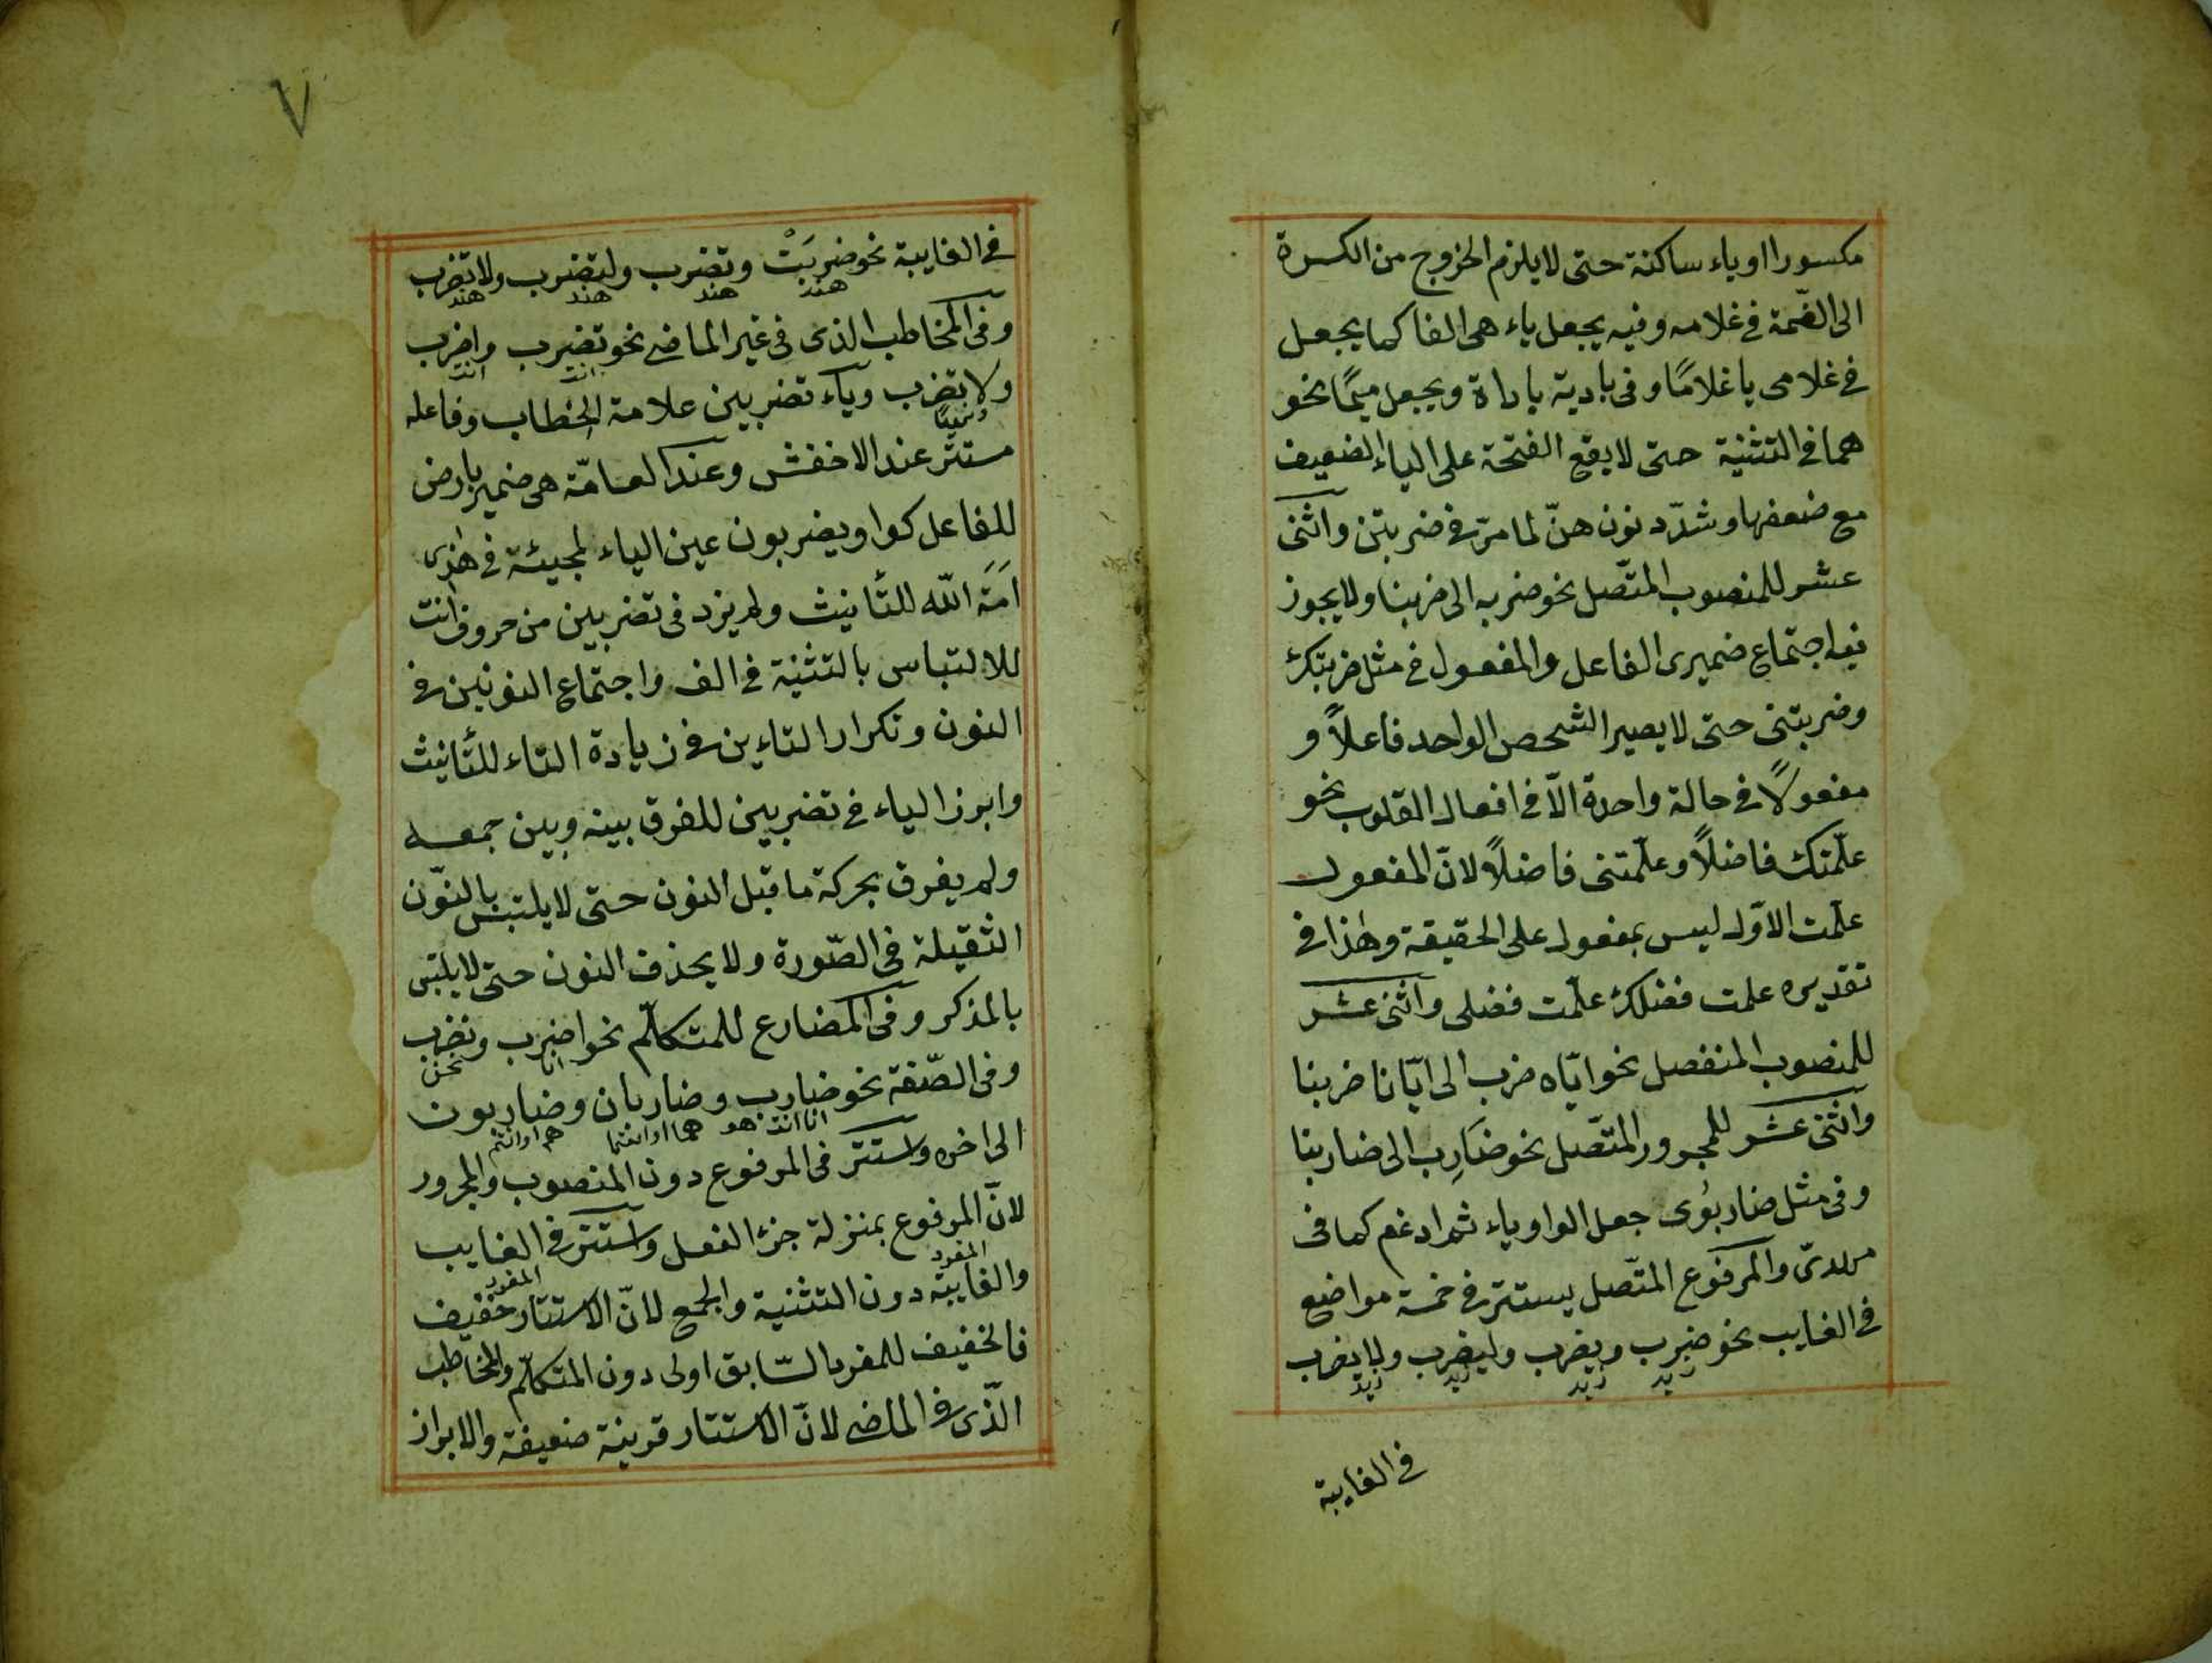 مكسورا اوياء ساكنة حتى لا يلزم الخروج من الكسرة
الى الضّمة فى غلامه وفيه يجعل ياء هى الفا كما يجعل
فى غلامى يا غلامًا وفى بادية باداة ويجعل ميمًا نحو
هما فى التثنية حتى لا يقع الفتحة على الياء الضعيف
مع ضعفها وشدّد نون هنّ لما مرّ فى ضربتن واثنى
عشر للمنصوب المتّصل نحو ضربه الى ضربنا ولا يجوز
فيه اجتماع ضميرى الفاعل والمفعول فى مثل ضربتك
وضربتنى حتى لا يصير الشخص الواحد فاعلاً و
مفعولاً فى حالة واحدة الّا فى افعال القلوب نحو
علّمتك فاضلاً وعلّمتنى فاضلاً لانّ المفعول
علّمت الاوّل ليس بمفعول على الحقيقة وهذا فى
تقديره علمت فضلك علّمت فضلى واثنى عشر
للمنصوب المنفصل نحو ايّاه ضرب الى ايّانا ضربنا
واثنى عشر للمجرور المتّصل نحو ضاربه الى ضاربنا
وفى مثل ضاربُوى جعل الواو ياء ثم ادغم كما فى
مهدىّ والمرفوع المتّصل يستتر فى خمسة مواضع
فى الغايب نحو ضرب ويضرب وليضرب ولا يضرب
زيد زيد زيد زيد
فى الغايبة
٧
فى الغايبة نحو ضربَتْ وتضرب ولتضرب ولا تضرب
هند هند هند هند
وفى المخاطب الذى فى غير الماضى نحو تضرب واضرب
انت انت
ولا تضرب وياء تضربين علامة الخطاب وفاعله
مستتر عند الاخفش وعند العامّة هى ضمير بارض
للفاعل كواو يضربون عين الياء لمجيئه فى هذى
اَمَة الله للتأنيث ولم يزد فى تضربين من حروف انت
للالتباس بالتثنية فى الف واجتماع النونين فى
النون وتكرار التاءين فى زيادة التاء للتأنيث
وابرز الياء فى تضربين للفرق بينه وبين جمعه
ولم يفرق بحركة ما قبل النون حتى لا يلتبس بالنّون
الثقيلة فى الصّورة ولا يحذف النون حتى لا يلتبس
بالمذكر وفى المضارع للمتكلّم نحو اضرب ونضرب
انا نحن
وفى الصّفة نحو ضارب وضاربان وضاربون
انا انت هو هما او انتما هم او انتم
الى اخره واستتر فى المرفوع دون المنصوب والمجرور
لانّ المرفوع بمنزلة جزء الفعل واستتر فى الغايب
المفرد
والغايبة دون التثنية والجمع لانّ الاستتار خفيف
المفرد
فالخفيف للمفرد السّابق اولى دون المتكلّم والمخاطب
الّذى فى الماضى لانّ الاستتار قرينة ضعيفة والابراز